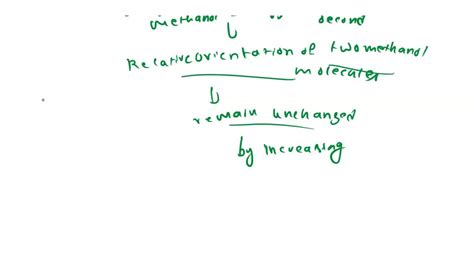 methanol second
Relative orientation of two methanol
molecules
remain unchanged
by increasing